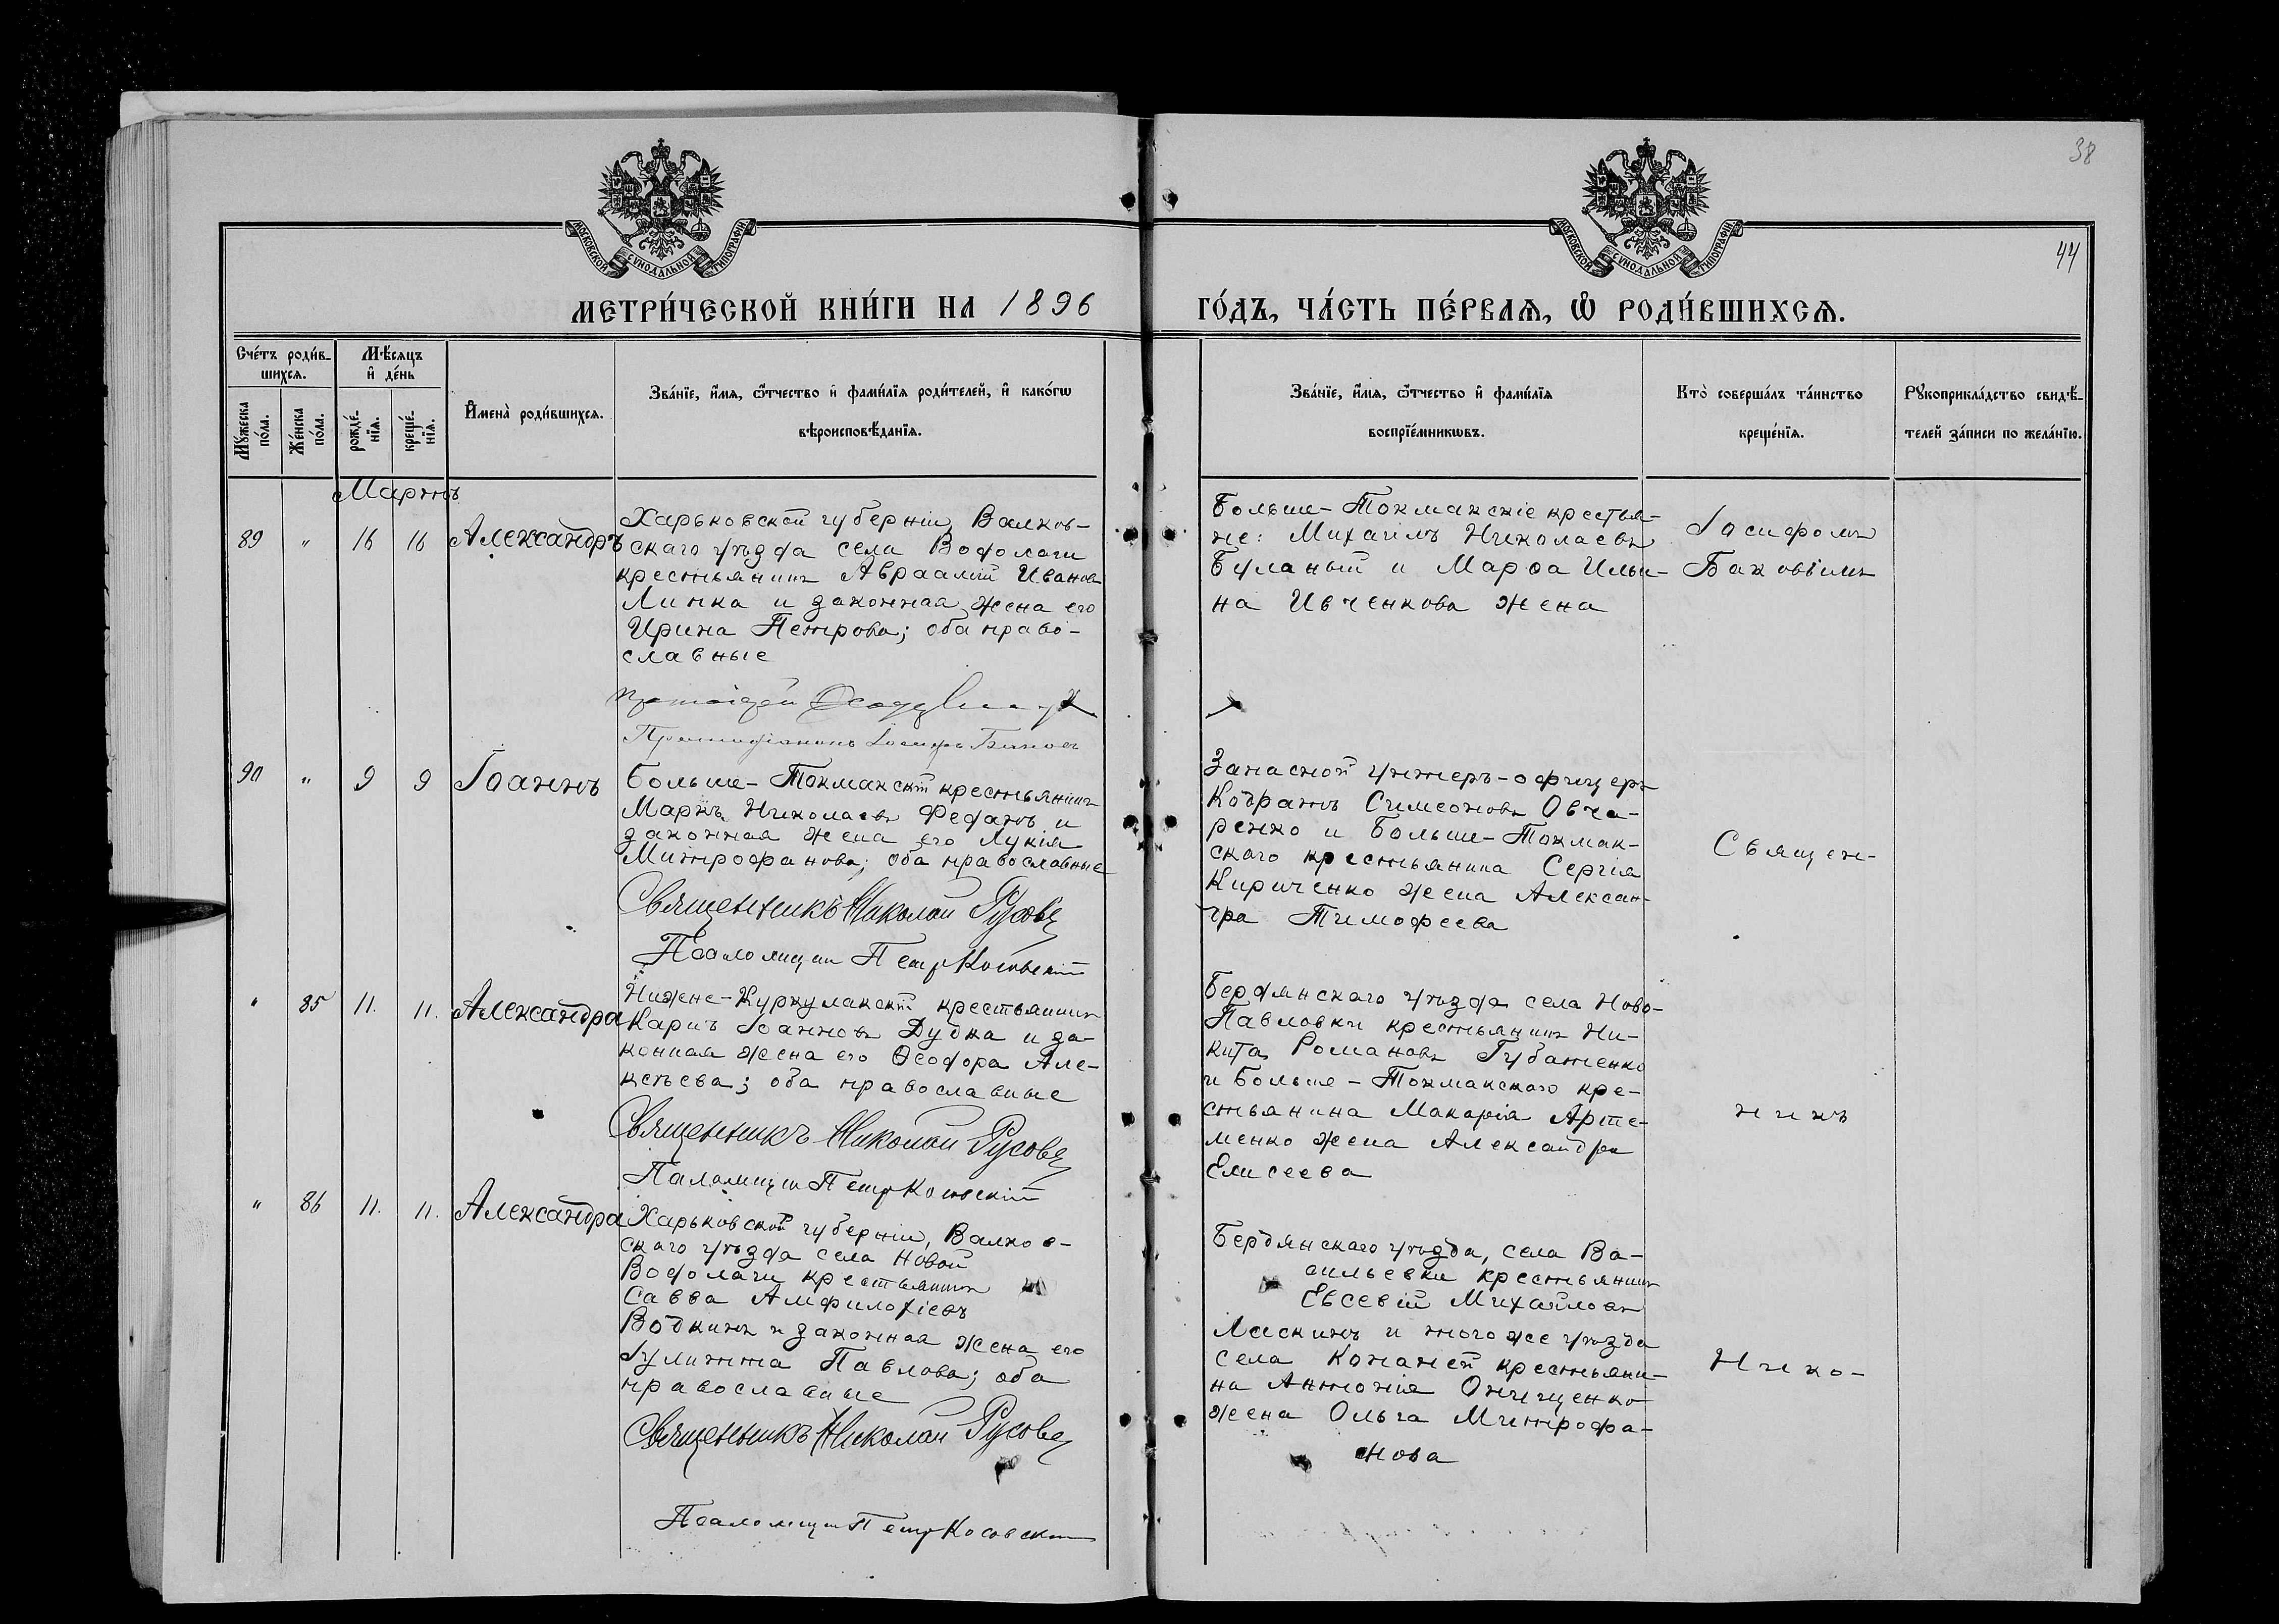 38
44
МОСКОВСКОЙ СѴНОДАЛЬНОЙ ТИПОГРАФІИ
МОСКОВСКОЙ СѴНОДАЛЬНОЙ ТИПОГРАФІИ
МЕТРИ́ЧЕСКОЙ КНИ́ГИ НА 1896
ГО́ДЪ, ЧА́СТЬ ПЕ́РВАѦ, Ѽ РОДИ́ВШИХСѦ.
Сче́тъ роди́в-
шихсѧ.
Мꙋ́жеска
по́ла.
Же́нска
по́ла.
Мѣ́сѧцъ
и҆ де́нь
рожде́-
нїѧ.
креще́-
нїѧ.
И҆мена̀ роди́вшихсѧ.
Зва́нїе, и҆́мѧ, ѻ҆́тчество и҆ фами́лїѧ роди́телей, и҆ како́гѡ
вѣроисповѣ́данїѧ.
Зва́нїе, и҆́мѧ, ѻ҆́тчество и҆ фами́лїѧ
воспрїе́мникѡвъ.
Кто̀ соверша́лъ та́инство
креще́нїѧ.
Рꙋкоприкла́дство свидѣ́-
телей за́писи по жела́нїю.
Мартъ
89 " 16 16 Александръ
Харьковской губерніи, Валков-
скаго уѣзда села Водолаги
крестьянинъ Авраамій Ивановъ
Липка и законная жена его
Ирина Петрова; оба право-
славные
Больше-Токмакскіе крестья-
не: Михаилъ Николаевъ
Буланый и Марѳа Ильи-
на Ивченкова жена
Іосифомъ
Баковымъ
90 " 9 9 Іоаннъ
Больше-Токмакскій крестьянинъ
Маркъ Николаевъ Феданъ и
законная жена его Лукія
Митрофанова; оба православные
Священникъ Николай Русовъ
Псаломщикъ Петр Косовскій
Запасной унтеръ-офицеръ
Кодратъ Симеоновъ Овча-
ренко и Больше-Токмак-
скаго крестьянина Сергія
Кириченко жена Алексан-
дра Тимофеева
Священ-
" 85 11. 11. Александра
Нижне-Куркулакскій крестьянинъ
Карпъ Іоанновъ Дудка и за-
конная жена его Ѳеодора Але-
ксѣева; оба православные
Священникъ Николай Русовъ
Псаломщик Петр Косовскій
Бердянскаго уѣзда села Ново-
Павловки крестьянинъ Ни-
кита Романовъ Губатенко
и Больше-Токмакскаго кре-
стьянина Макарія Арте-
менко жена Александра
Елисеева
никъ
" 86 11. 11. Александра
Харьковской губерніи, Валков-
скаго уѣзда села Новой
Водолаги крестьянинъ
Савва Амфилохіевъ
Водкинъ и законная жена его
Іулитта Павлова; оба
православные
Священникъ Николай Русовъ
Псаломщик Петр Косовский
Бердянскаго уѣзда, села Ва-
сильевки крестьянинъ
Евсевій Михайловъ
Ласкинъ и того же уѣзда
села Конаней крестьяни-
на Антонія Онищенко
жена Ольга Митрофа-
нова
Нико-